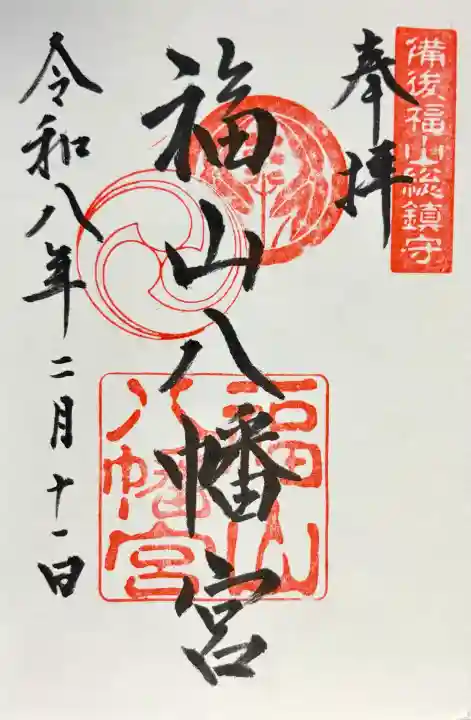 備後福山総鎮守
奉拝
福山八幡宮
福山
八幡宮
令和八年二月十一日